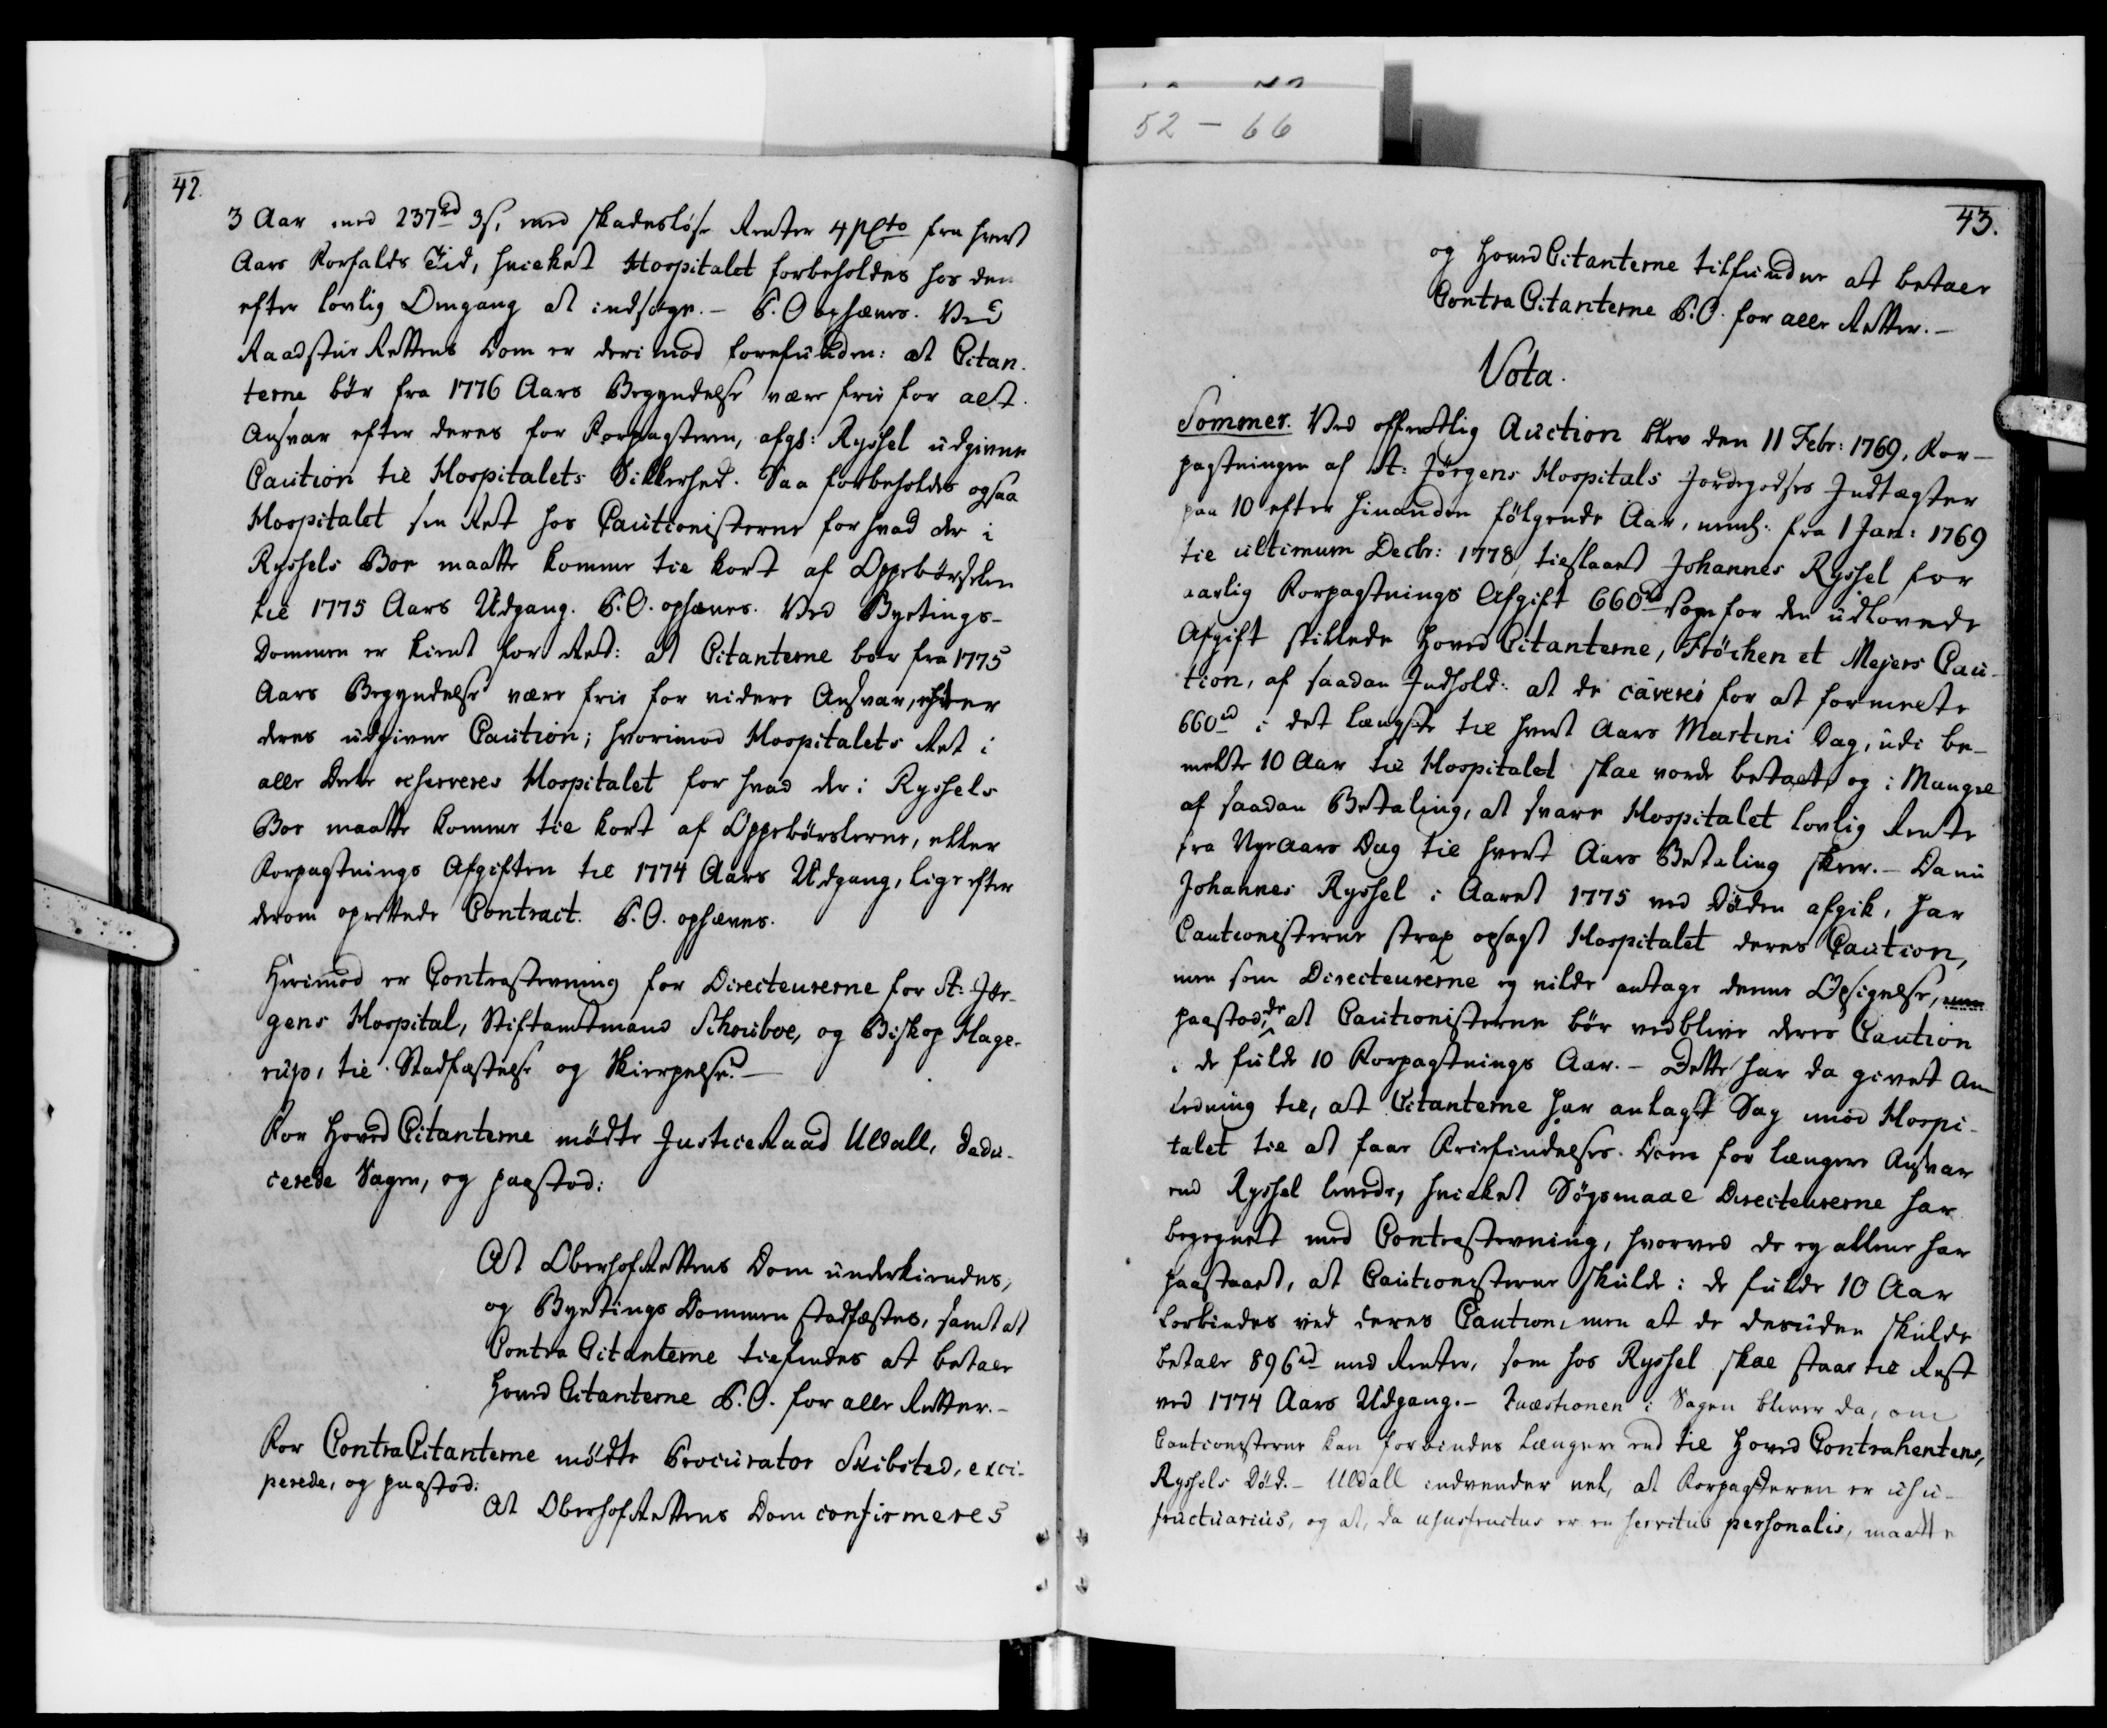 52 – 66
42.
3 Aar med 237rd 3s, med skadesløse Renter 4 pCto fra hvert
Aars Forfalds Tid, hvilket Hospitalet forbeholdes hos dem
efter lovlig Omgang at indsøge. – P. O ophæves. Ved
Raadstue Rettens Dom er derimod forefunden: at Citan-
terne bör fra 1776 Aars Begyndelse være frie for alt
Ansvar efter deres for Forpagteren, afgl: Ryssel udgivne
Caution til Hospitalets Sikkerhed. Saa forbeholdes ogsaa
Hospitalet sin Ret hos Cautionisterne for hvad der i
Ryssels Boe maatte komme til kort af Oppebörselen
til 1775 Aars Udgang. P. O. ophæves. Ved Byetings-
Dommen er kient for Ret: at Citanterne bör fra 1775
Aars Begyndelse være frie for videre Ansvar, efter
deres udgivne Caution; hvorimod Hospitalets Ret i
alle Deele reserveres Hospitalet for hvad der i Ryssels
Boe maatte komme til kort af Oppebörslerne, eller
Forpagtnings Afgiften til 1774 Aars Udgang, lige efter
derom oprettede Contract. P. O. ophæves.
Hvorimod er Contrastevning for Directeurerne for St: Jör-
gens Hospital, Stiftamtmand Schouboe, og Biskop Hage-
rup, til Stadfæstelse og Skierpelse. –
For HovedCitanterne mödte JusticeRaad Uldall, dedu-
cerede Sagen, og paastod:
At OberhofRettens Dom underkiendes,
og Byetings Dommen stadfæstes, samt at
Contra Citanterne tilfindes at betale
Hoved Citanterne P. O. for alle Retter. –
For ContraCitanterne mödte Procurator Skibsted, exci-
perede, og paastod:
At OberhofRettens Dom confirmeres
43.
og HovedCitanterne tilfindes at betale
ContraCitanterne P. O. for alle Retter. –
Vota.
Sommer. Ved offentlig Auction blev den 11 Febr: 1769, For-
pagtningen af St: Jörgens Hospitals Jordegodses Indtægter
paa 10 efter hinanden fölgende Aar, neml: fra 1 Jan: 1769
til ultimum Decbr: 1778, tilslaaet Johannes Ryssel for
aarlig Forpagtnings Afgift 660rd som for den udlovede
Afgift stillede HovedCitanterne, Stöcken et Mejers Cau-
tion, af saadan Indhold: at de caverer for at formeldte
660rd i det længste til hvert Aars Martini Dag, udi be-
meldte 10 Aar til Hospitalet skal vorde betalt, og i Mangel
af saadan Betaling, at svare Hospitalet lovlig Rente
fra Nye Aars Dag til hvert Aars Betaling skeer. – Da nu
Johannes Ryssel i Aaret 1775 ved Döden afgik, har
Cautionisterne strax opsagt Hospitalet deres Caution,
men som Directeurerne ej vilde antage denne Opsigelse, men
paastod de at Cautionisterne bör vedblive deres Caution
i de fulde 10 Forpagtnings Aar. – Dette har da givet An-
ledning til, at Citanterne har anlagt Sag imod Hospi-
talet til at faae Frifindelses-Dom for længere Ansvar
end Ryssel levede, hvilket Sögsmaal Directeurerne har
begegnet med Contrastevning, hvorved de ej allene har
paastaaet, at Cautionisterne skulde i de fulde 10 Aar
forbindes ved deres Caution, men at de desuden skulde
betale 896rd med Renter, som hos Ryssel skal staae til Rest
ved 1774 Aars Udgang. – Quæstionen i Sagen bliver da, om
Cautionisterne kan forbindes længere end til Hoved Contrahentens,
Ryssels Död. – Uldall indvender vel, at Forpagteren er usu-
fructuarius, og at, da ususfructus er en servitus personalis, maatte